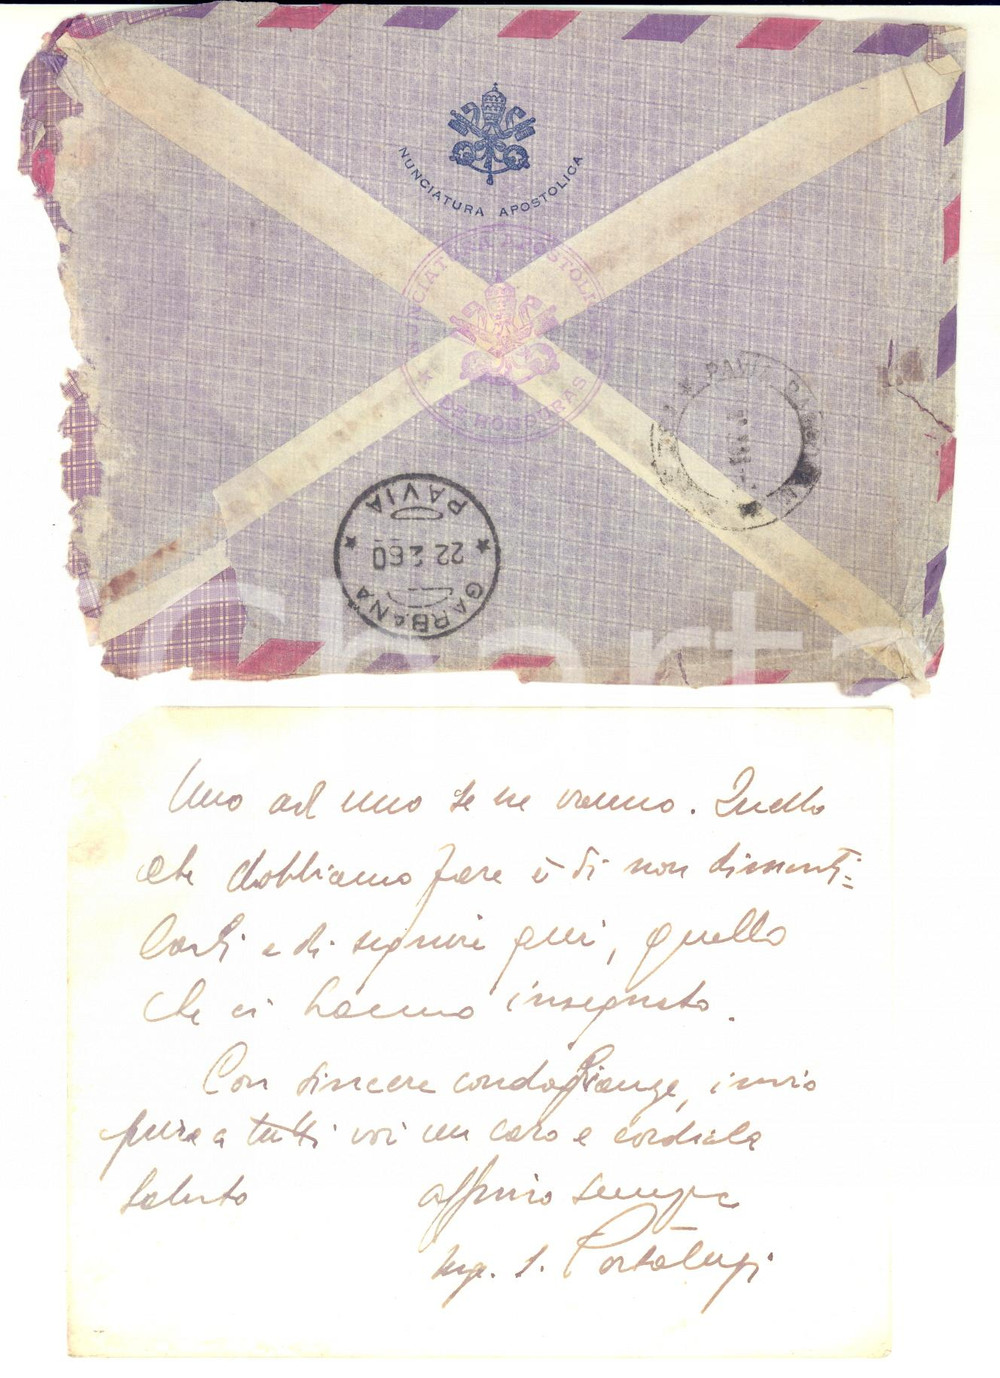 NUNCIATURA APOSTOLICA
NUNCIATURA APOSTOLICA
DE HONDURAS
PAVIA
GARBANA
22 2 60
PAVIA
Charta
Uno ad uno se ne vanno. Quello
che dobbiamo fare è di non dimenti=
carli e di seguire puri, quello
che ci hanno insegnato.
Con sincere condoglianze, invio
pure a tutti voi un caro e cordiale
saluto
aff.mo sempre
S. Portalupi